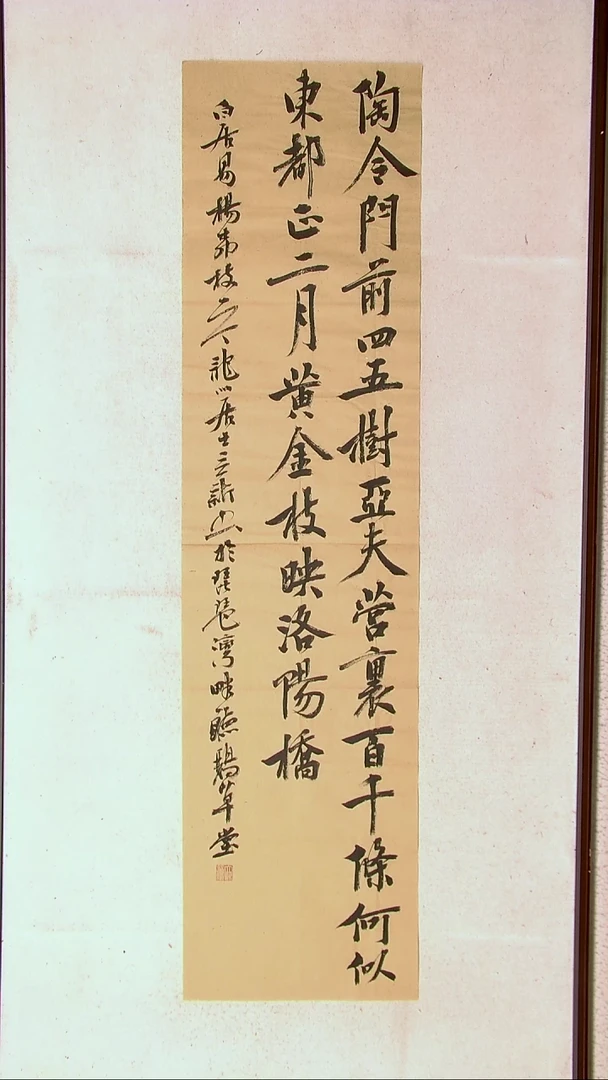 陶令門前四五樹亞夫營裏百千條何似
東都正二月黃金枝映洛陽橋
白居易楊柳枝 龍 居士三 於琵琶灣畔聽鵝草堂